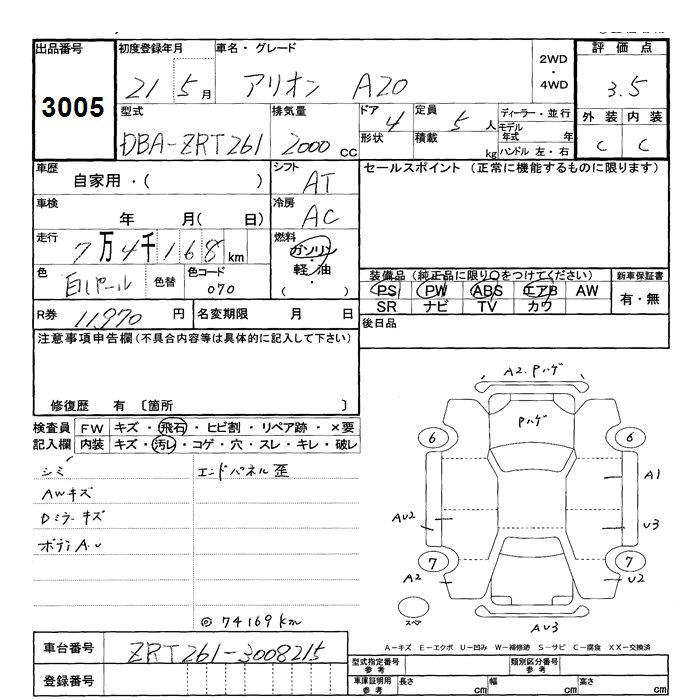 出品番号 初度登録年月 車名・グレード 2WD ・ 4WD 評価点
3005 21 5月 アリオン A20 3.5
型式 排気量 ドア 4 定員 5人 ディーラー・並行 外装 内装
DBA-ZRT261 2000cc 形状 積載 kg モデル年式 年 C C
ハンドル 左・右
車歴 自家用・( ) シフト AT セールスポイント (正常に機能するものに限ります)
車検 年 月( 日) 冷房 AC
走行 7万4千168km 燃料 ガソリン
軽・油
( )
色 白パール 色替 色コード 070
装備品(純正品に限り○をつけてください) 新車保証書
PS PW ABS エアB AW 有・無
SR ナビ TV カワ
R券 11,970円 名変期限 月 日 後日品
注意事項申告欄(不具合内容等は具体的に記入して下さい)
修復歴 有 〔箇所 〕
検査員 FW キズ・飛石・ヒビ割・リペア跡・×要
記入欄 内装 キズ・汚レ・コゲ・穴・スレ・キレ・破レ
シミ エンドパネル歪
AWキズ
Dミラーキズ
ボディA.U
◎74169km
A2.Pハゲ
Pハゲ
6 6
A1
AU2 U3
7 7
A2 U2
スペ
AU3
A-キズ E-エクボ U-凹み W-補修跡 S-サビ C-腐食 XX-交換済
車台番号 ZRT261-3008215
登録番号
型式指定番号 参考 類別区分番号 参考
車庫証明用 参考 長さ cm 幅 cm 高さ cm